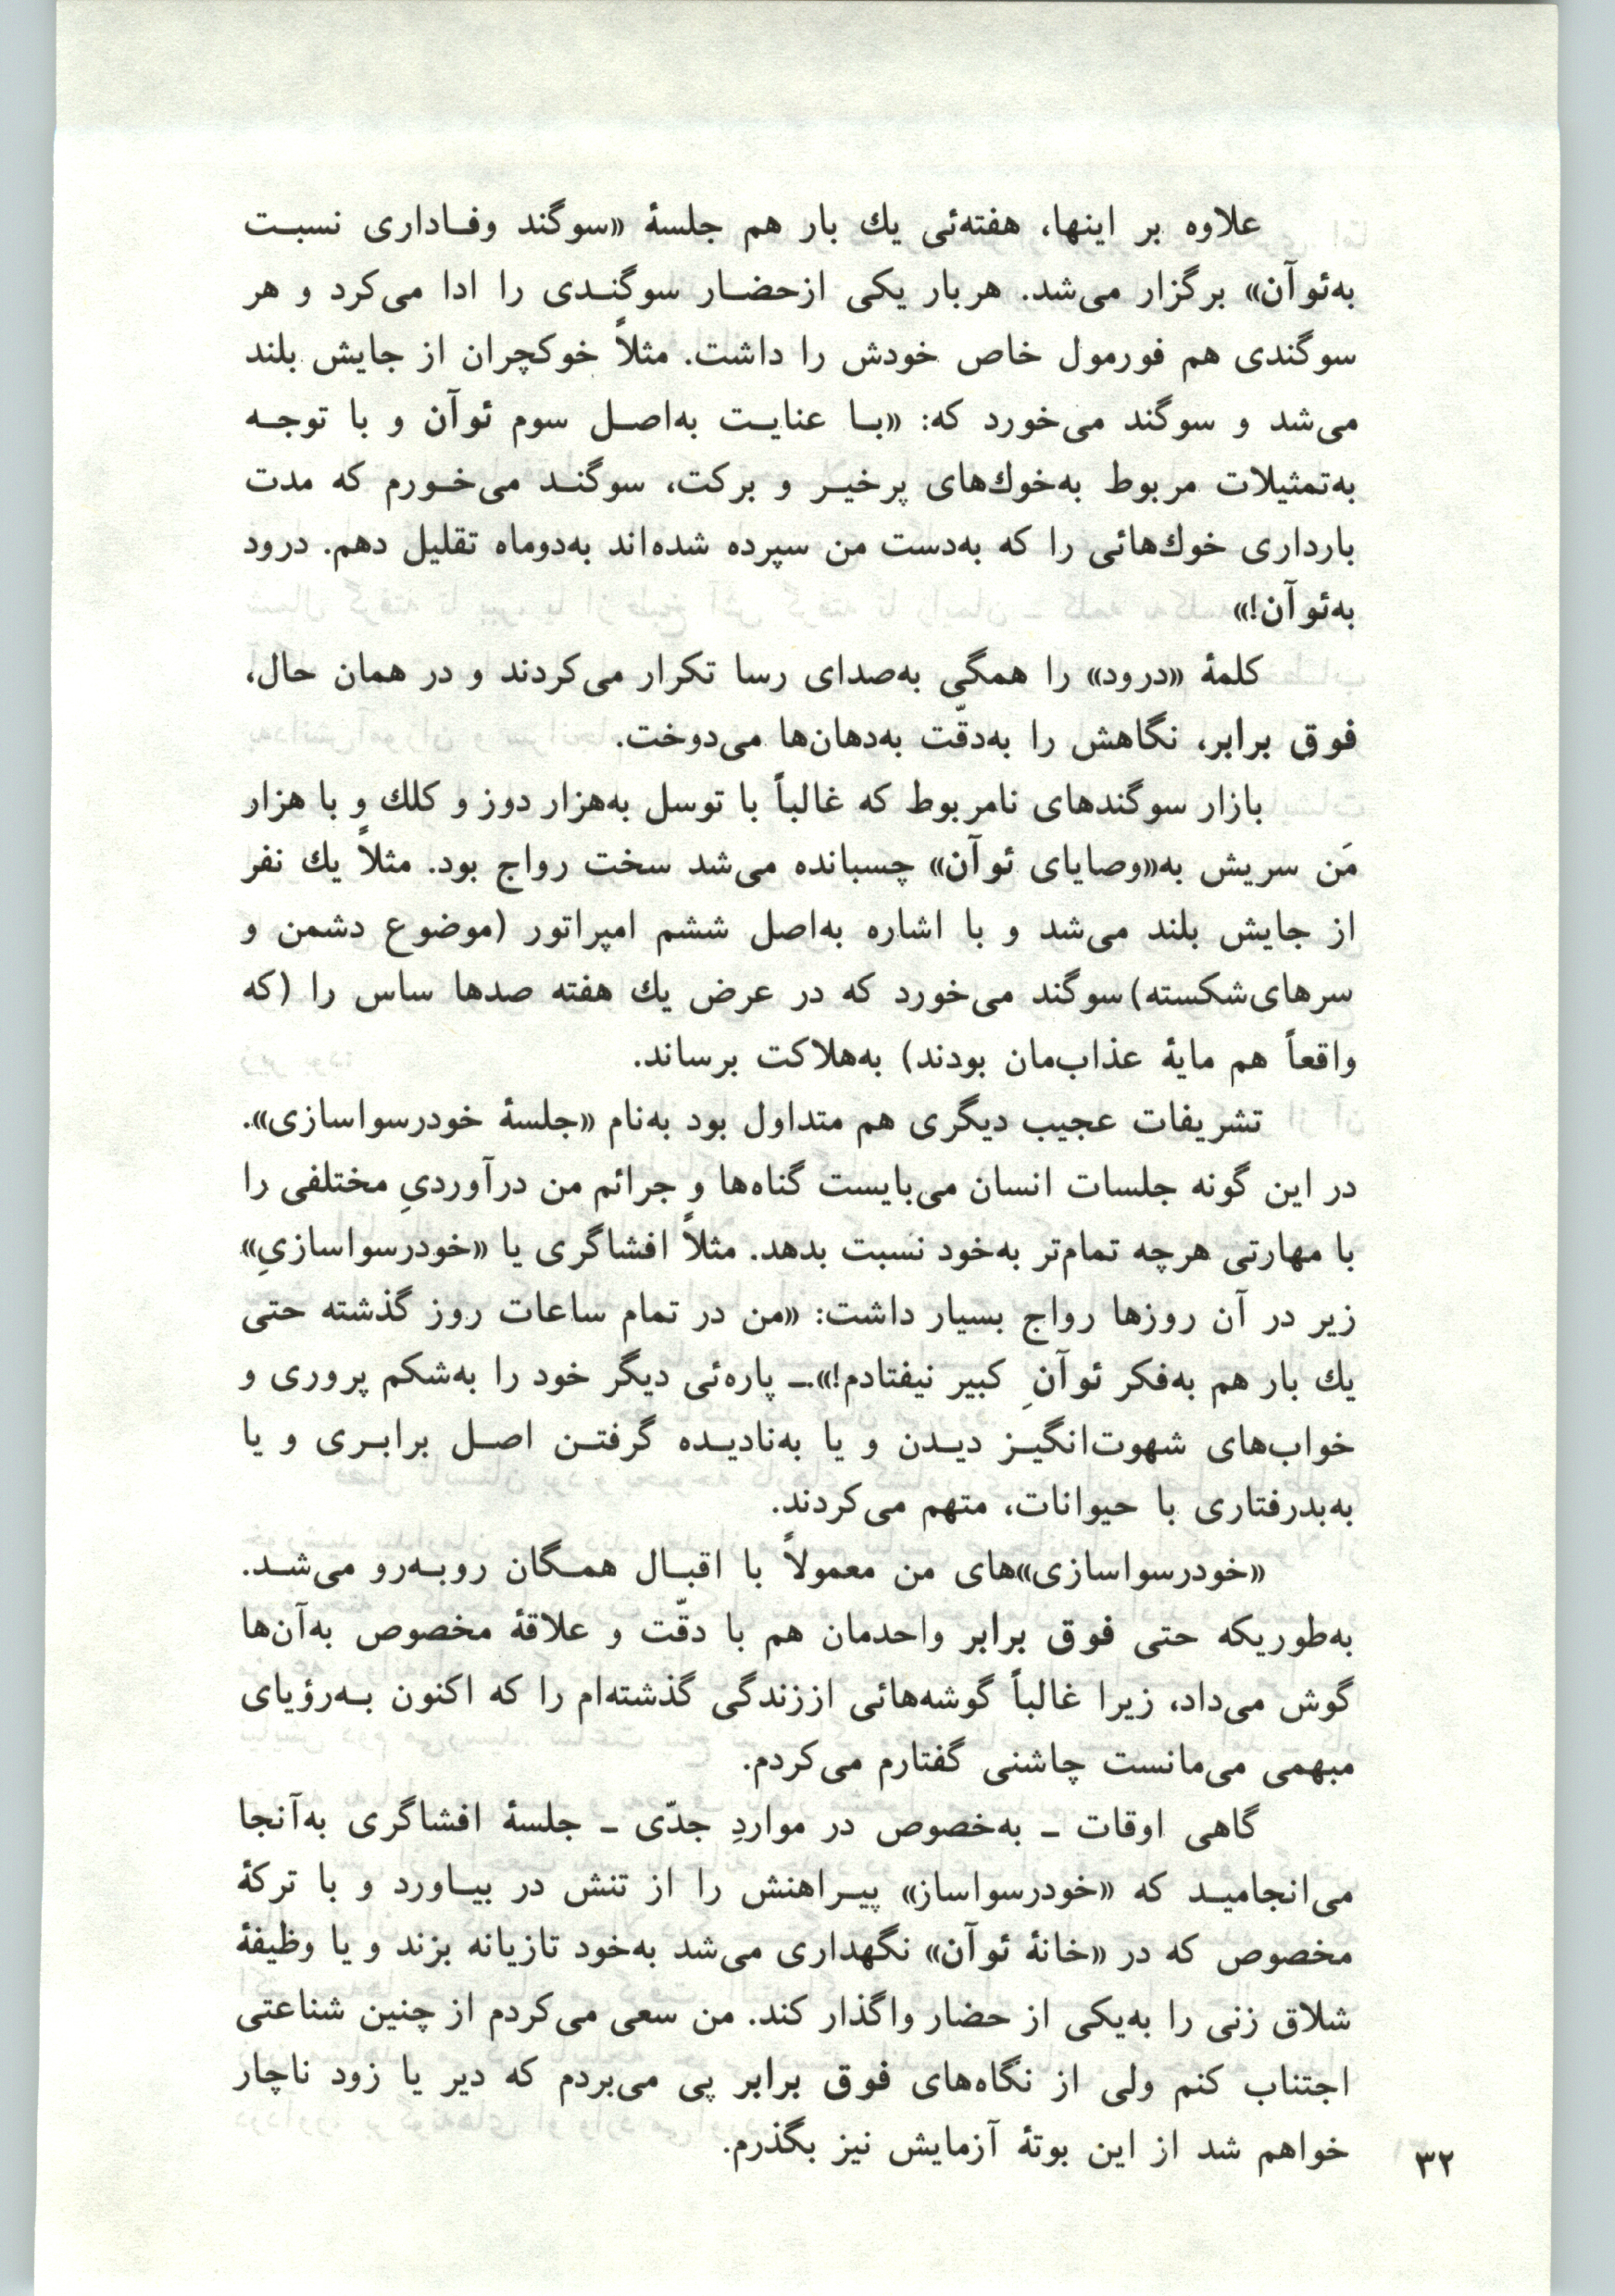 علاوه بر اینها، هفته‌ئی یك بار هم جلسهٔ «سوگند وفاداری نسبت
به‌ئوآن» برگزار می‌شد. هربار یکی ازحضار سوگندی را ادا می‌کرد و هر
سوگندی هم فورمول خاص خودش را داشت. مثلاً خوکچران از جایش بلند
می‌شد و سوگند می‌خورد که: «با عنایت به‌اصل سوم ئوآن و با توجه
به‌تمثیلات مربوط به‌خوك‌های پرخیر و برکت، سوگند می‌خورم که مدت
بارداری خوك‌هائی را که به‌دست من سپرده شده‌اند به‌دوماه تقلیل دهم. درود
به‌ئوآن!»
کلمهٔ «درود» را همگی به‌صدای رسا تکرار می‌کردند و در همان حال،
فوق برابر، نگاهش را به‌دقّت به‌دهان‌ها می‌دوخت.
بازار سوگندهای نامربوط که غالباً با توسل به‌هزار دوز و کلك و با هزار
مَن سریش به«وصایای ئوآن» چسبانده می‌شد سخت رواج بود. مثلاً یك نفر
از جایش بلند می‌شد و با اشاره به‌اصل ششم امپراتور (موضوع دشمن و
سرهای‌شکسته) سوگند می‌خورد که در عرض یك هفته صدها ساس را (که
واقعاً هم مایهٔ عذاب‌مان بودند) به‌هلاکت برساند.
تشریفات عجیب دیگری هم متداول بود به‌نام «جلسهٔ خودرسواسازی».
در این گونه جلسات انسان می‌بایست گناه‌ها و جرائم من درآوردیِ مختلفی را
با مهارتی هرچه تمام‌تر به‌خود نسبت بدهد. مثلاً افشاگری یا «خودرسواسازیِ»
زیر در آن روزها رواج بسیار داشت: «من در تمام ساعات روز گذشته حتی
یك بار هم به‌فکر ئوآنِ کبیر نیفتادم!».ـ پاره‌ئی دیگر خود را به‌شکم پروری و
خواب‌های شهوت‌انگیز دیدن و یا به‌نادیده گرفتن اصل برابری و یا
به‌بدرفتاری با حیوانات، متهم می‌کردند.
«خودرسواسازی»های من معمولاً با اقبال همگان روبه‌رو می‌شد.
به‌طوریکه حتی فوق برابر واحدمان هم با دقّت و علاقهٔ مخصوص به‌آن‌ها
گوش می‌داد، زیرا غالباً گوشه‌هائی اززندگی گذشته‌ام را که اکنون به‌رؤیای
مبهمی می‌مانست چاشنی گفتارم می‌کردم.
گاهی اوقات ـ به‌خصوص در مواردِ جدّی ـ جلسهٔ افشاگری به‌آنجا
می‌انجامید که «خودرسواساز» پیراهنش را از تنش در بیاورد و با ترکهٔ
مخصوص که در «خانهٔ ئوآن» نگهداری می‌شد به‌خود تازیانه بزند و یا وظیفهٔ
شلاق زنی را به‌یکی از حضار واگذار کند. من سعی می‌کردم از چنین شناعتی
اجتناب کنم ولی از نگاه‌های فوق برابر پی می‌بردم که دیر یا زود ناچار
خواهم شد از این بوتهٔ آزمایش نیز بگذرم.
۳۲